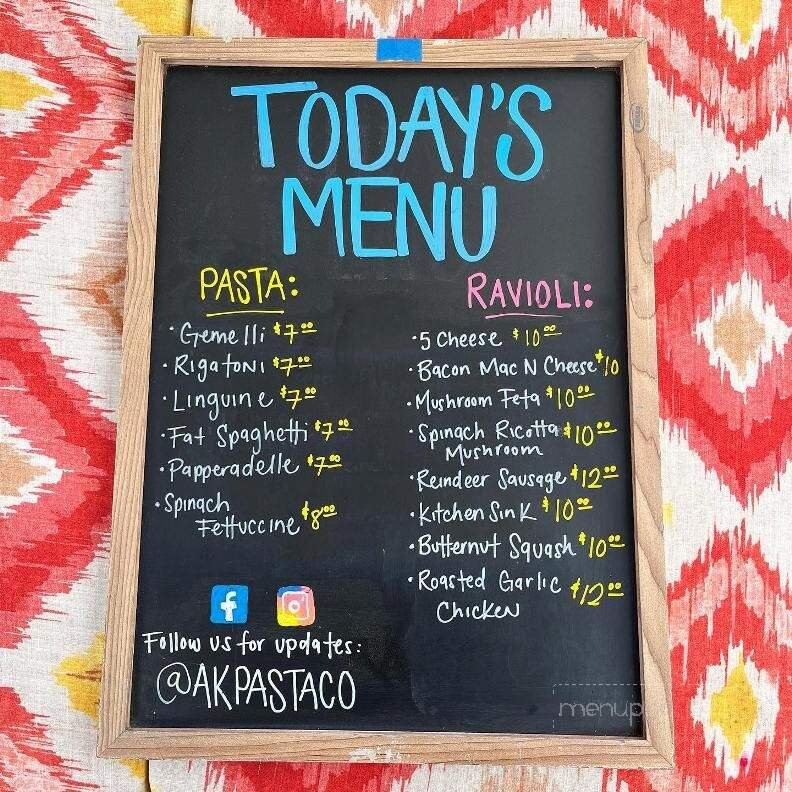 TODAY'S
MENU
PASTA:
· Gemelli $7.00
· Rigatoni $7.00
· Linguine $7.00
· Fat Spaghetti $7.00
· Papperadelle $7.00
· Spinach
Fettuccine $8.00
RAVIOLI:
· 5 Cheese $10.00
· Bacon Mac N Cheese $10
· Mushroom Feta $10.00
· Spinach Ricotta $10.00
Mushroom
· Reindeer Sausage $12.00
· Kitchen Sink $10.00
· Butternut Squash $10.00
· Roasted Garlic $12.00
Chicken
Follow us for updates:
@AKPASTACO
menup